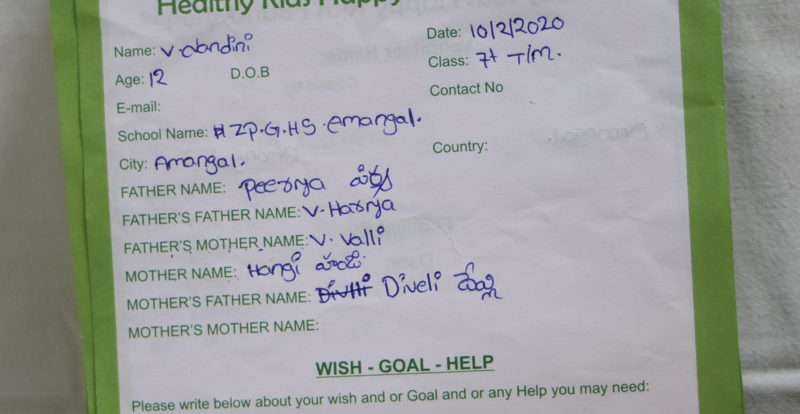 Healthy Kids Happy
Date: 10/2/2020
Name: V Nandini
Class: 7t T/M.
Age: 12 D.O.B
Contact No
E-mail:
School Name: ZP.G.HS. Amangal.
City: Amangal.
Country:
FATHER NAME: Peerya
FATHER'S FATHER NAME: V. Harya
FATHER'S MOTHER NAME: V. Valli
MOTHER NAME: Hangi హంగి
MOTHER'S FATHER NAME: Diveli
MOTHER'S MOTHER NAME:
WISH - GOAL - HELP
Please write below about your wish and or Goal and or any Help you may need: